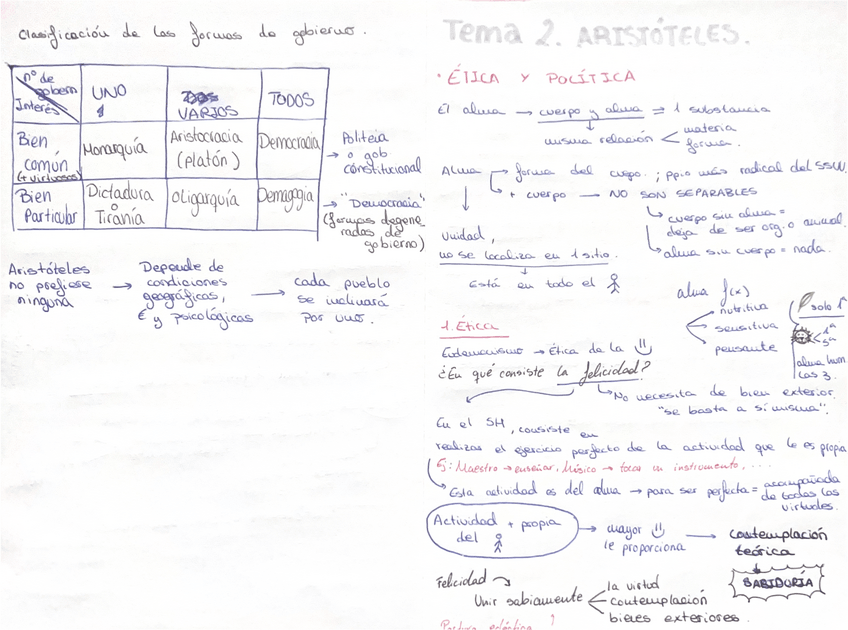 Clasificación de las formas de gobierno.
nº de gobern
Interés
UNO
1
VARIOS
TODOS
Bien común
(+ virtuosos)
Monarquía
Aristocracia
(platón)
Democracia
→ Politeia
o gob
constitucional
Bien
Particular
Dictadura
o
Tiranía
Oligarquía
Demagogia
→ "Democracia"
(formas degene
radas de
gobierno)
Aristóteles
no prefiere
ninguna
→ Depende de
condiciones
geográficas,
€ y psicológicas
→ cada pueblo
se inclinará
por uno.
Tema 2. ARISTÓTELES.
· ÉTICA Y POLÍTICA
El alma → cuerpo y alma = 1 substancia
misma relación < materia
forma.
Alma → forma del cuerpo. ; ppio más radical del
+ cuerpo → NO SON SEPARABLES
cuerpo sin alma =
deja de ser org. o animal.
alma sin cuerpo = nada.
Unidad,
no se localiza en 1 sitio.
Está en todo el
alma f(x)
nutritiva
sensitiva
pensante
solo 1ª
1ª
5ª
alma hum
las 3.
1. Ética
Eudemonismo → Ética de la
¿En qué consiste la felicidad?
→ No necesita de bien exterior
"se basta a sí misma".
En el SH, consiste en
realizar el ejercicio perfecto de la actividad que le es propia
Ej: Maestro → enseñar, Músico → tocar un instrumento, ...
Esta actividad es del alma → para ser perfecta = acompañada
de todas las
virtudes.
Actividad + propia
del
→ mayor
le proporciona
→ contemplación
teórica
SABIDURÍA
Felicidad
Unir sabiamente
la virtud
contemplación
bienes exteriores.